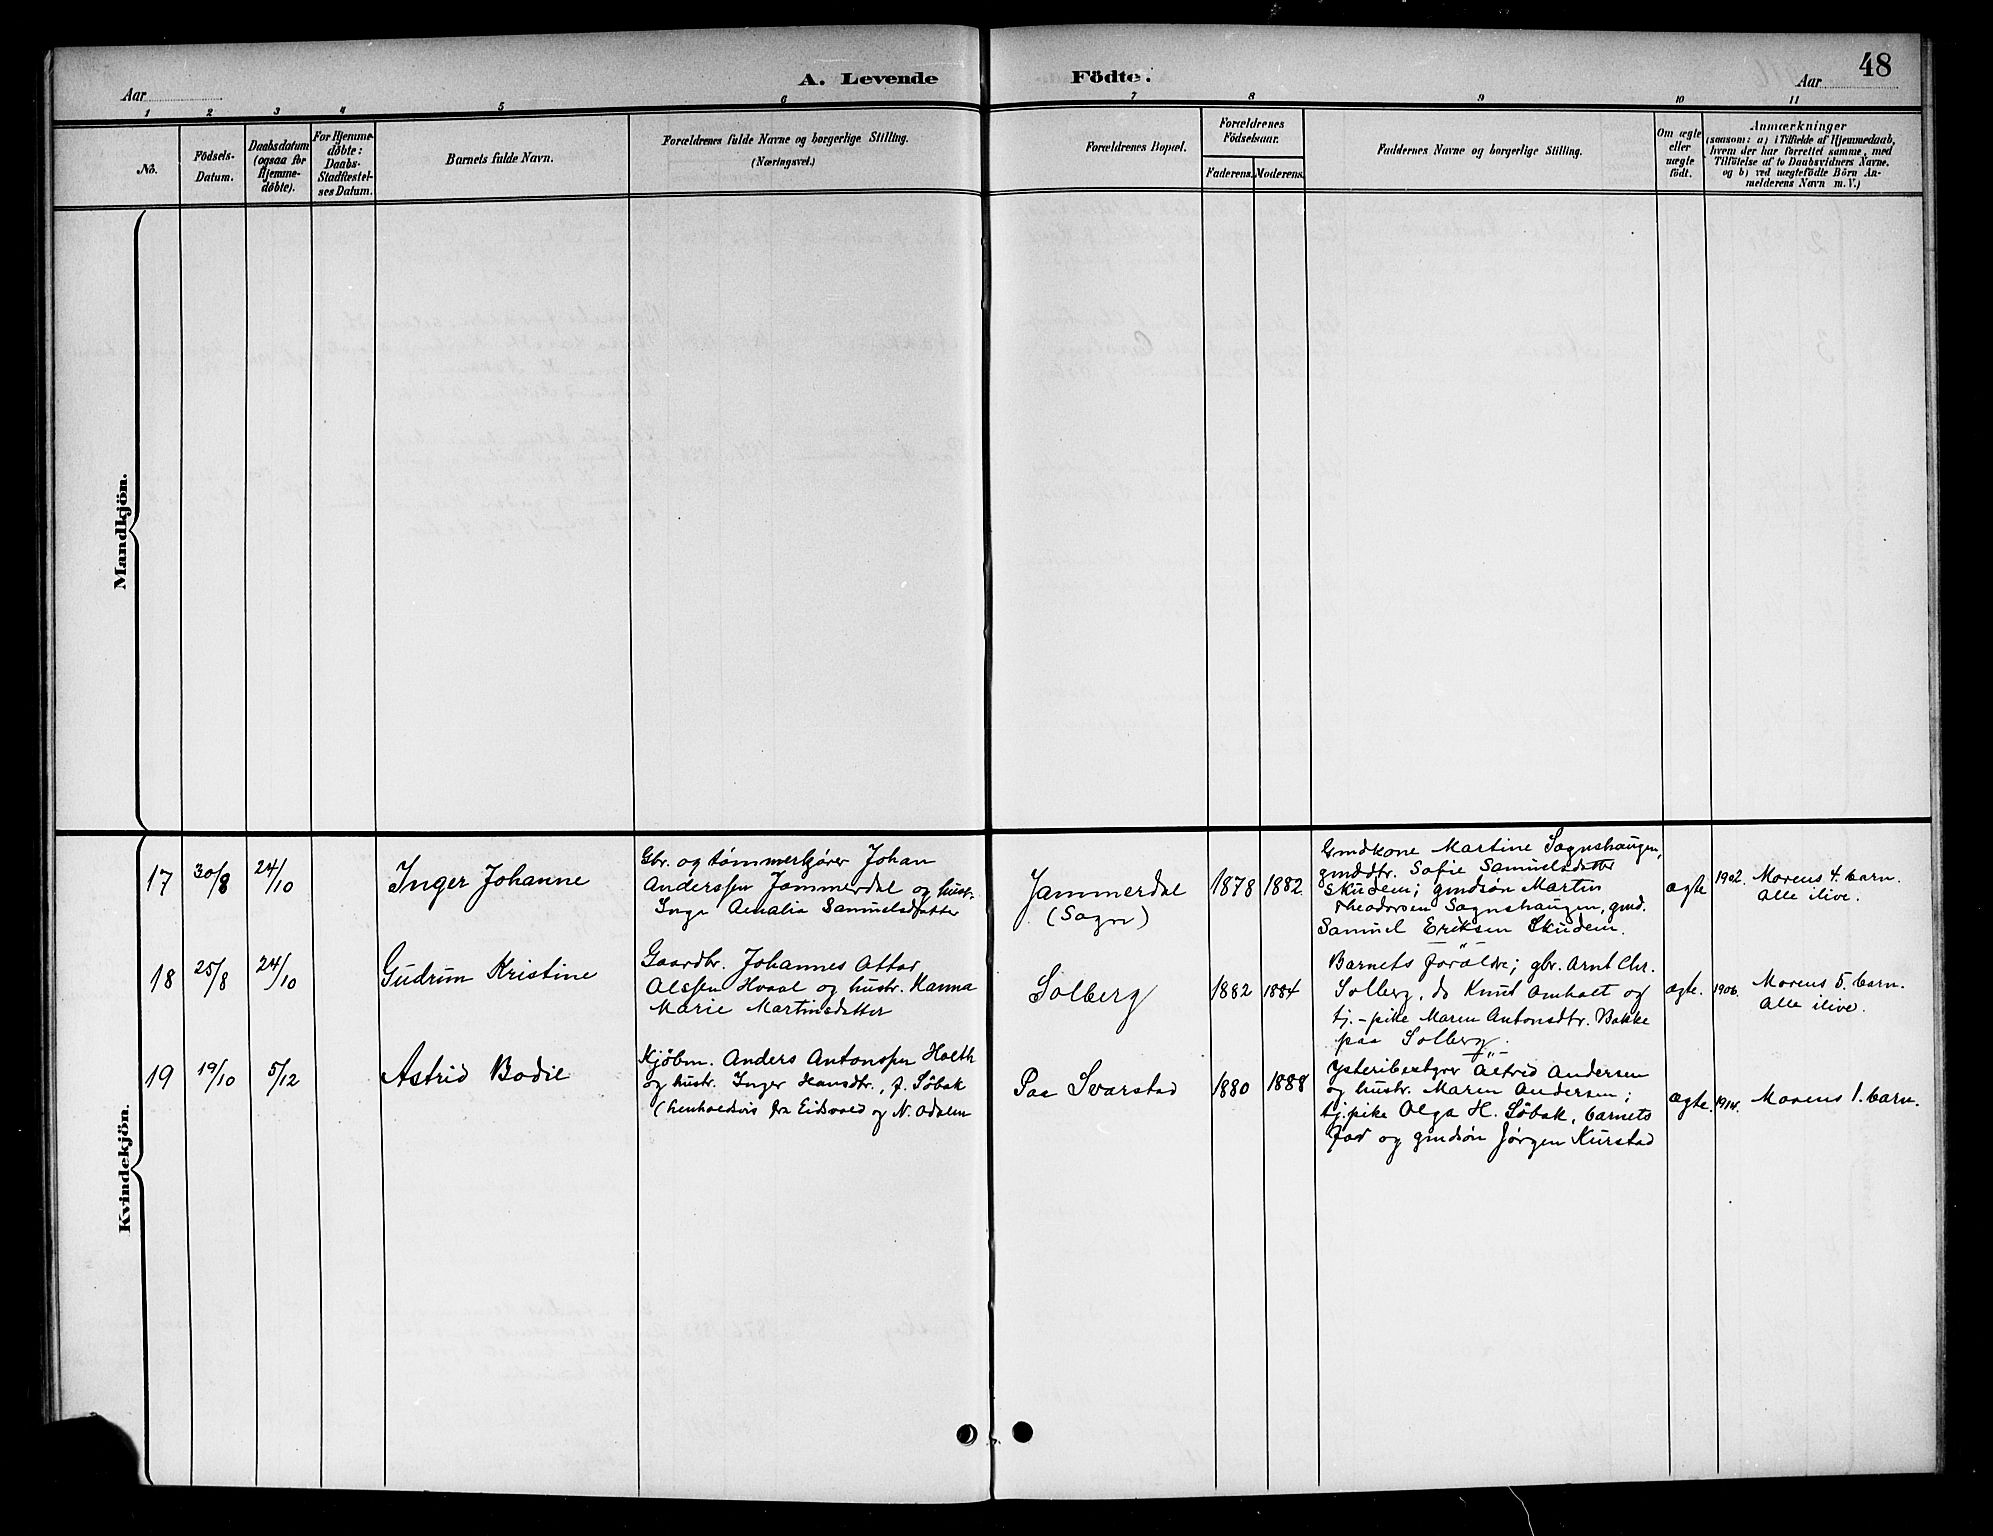 48
A. Levende Födte.
Aar
Aar
1 2 3 4 5 6 7 8 9 10 11
No.
Födsels-
Datum.
Daabsdatum
(ogsaa for
Hjemme-
döbte).
For Hjemme-
döbte:
Daabs-
Stadfæstel-
ses Datum.
Barnets fulde Navn.
Forældrenes fulde Navne og borgerlige Stilling.
(Næringsvei.)
Forældrenes Bopæl.
Forældrenes
Födselsaar.
Faderens. Moderens.
Faddernes Navne og borgerlige Stilling.
Om ægte
eller
uægte
födt.
Anmærkninger
(saasom: a) i Tilfælde af Hjemmedaab,
hvem der har forrettet samme, med
Tilföielse af to Daabsvidners Navne.
og b) ved uægtefödte Börn An-
melderens Navn m. V.)
Mandkjön.
Kvindekjön.
17 30/8 24/10
Inger Johanne
Gbr. og tømmerkjører Johan
Anderssen Jammerdal og hust.
Inga Amalia Samuelsdatter
Jammerdal
(Sogn)
1878 1882
Gmdkone Martine Sognshaugen,
gmddtr. Sofie Samuelsdatter
Skudem; gmdsøn Martin
Theodorsen Sognshaugen, gmd.
Samuel Eriksen Skudem.
ægte
1902. Morens 4. barn.
Alle ilive.
18 25/8 24/10
Gudrun Kristine
Gaardbr. Johannes Ottar
Olssen Hvaal og hustr. Hanna
Marie Martinsdatter
Solberg
1882 1884
Barnets forældre; gbr. Arnt Chr.
Solberg, do Knut Omholt og
tj.-pike Maren Antonsdtr. Bakke
paa Solberg.
ægte.
1906. Morens 5. barn.
Alle ilive.
19 19/10 5/12
Astrid Bodil
Kjøbm. Anders Antonssen Holth
og hustr. Inger Hansdtr., f. Søbak
(henholdsvis fra Eidsvold og N. Odalen
Paa Svarstad
1880 1888
Ysteribestyrer Alfred Andersen
og hustr. Maren Andersen;
tj.pike Olga H. Søbak, barnets
far og gmdsøn Jørgen Kurstad
ægte.
1914. Morens 1. barn.